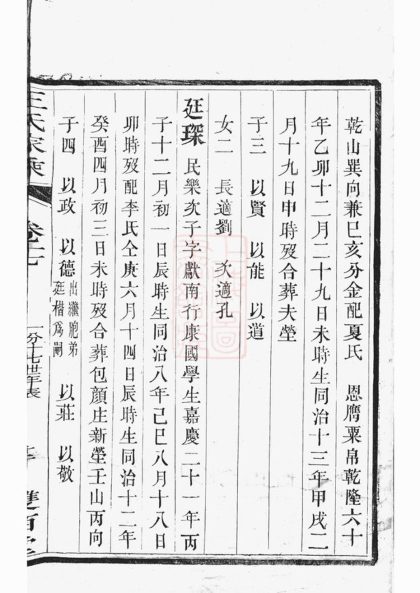 乾山巽向兼巳亥分金配夏氏 恩膺粟帛乾隆六十
年乙卯十二月二十九日未時生同治十三年甲戌二
月十九日申時歿合葬夫塋
子三 以賢 以能 以道
女二 長適劉 次適孔
廷琛 民樂次子字獻南行康國學生嘉慶二十一年丙
子十二月初一日辰時生同治八年己巳八月十八日
卯時歿配李氏仝庚六月十四日辰時生同治十二年
癸酉四月初三日未時歿合葬包顏庄新塋壬山丙向
子四 以政 以德出繼胞弟廷楷為嗣 以莊 以敬
王氏家乘 卷十七 一分十七世年表